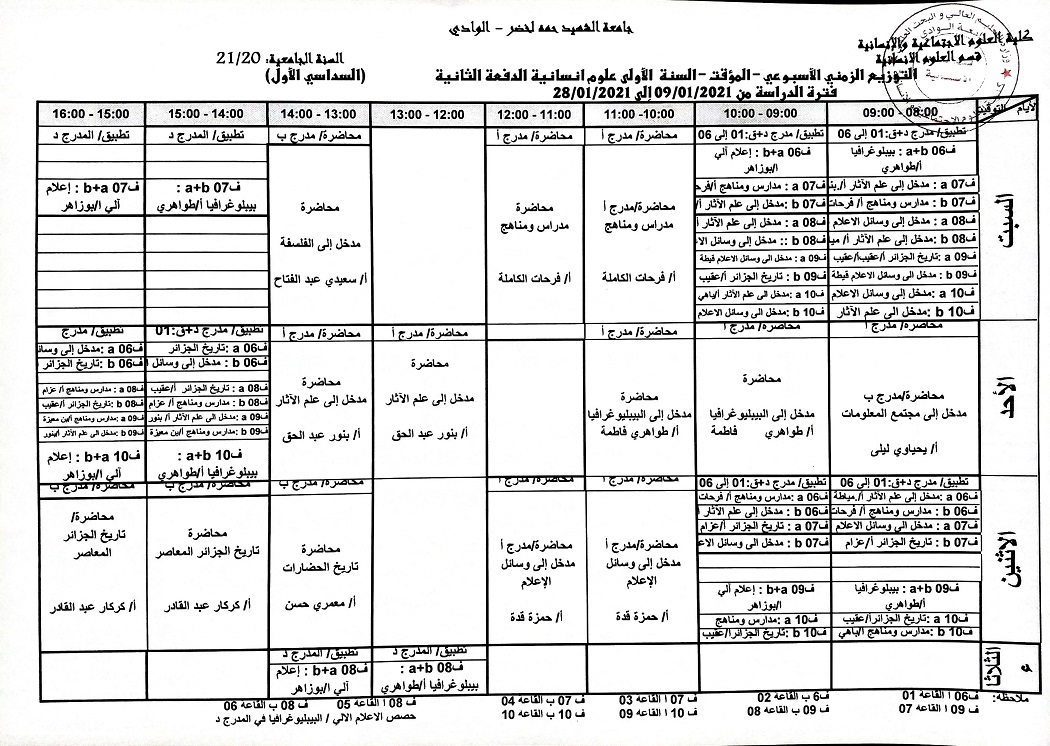 جامعة الشهيد حمه لخضر – الوادي
كلية العلوم الاجتماعية والإنسانية
قسم العلوم الانسانية
السنة الجامعية: 21/20
التوزيع الزمني الأسبوعي -المؤقت- السنة الأولى علوم انسانية الدفعة الثانية (السداسي الأول)
فترة الدراسة من 09/01/2021 إلى 28/01/2021
الأيام التوقيت 08:00 - 09:00 09:00 - 10:00 10:00 -11:00 11:00 - 12:00 12:00 - 13:00 13:00 - 14:00 14:00 - 15:00 15:00 - 16:00
السبت
تطبيق/ مدرج د+ق:01 إلى 06
ف06 a+b : بيبلوغرافيا
أ/طواهري
ف07 a : مدخل إلى علم الآثار
ف07 b : مدارس ومناهج أ/ فرحات
ف08 a : مدخل إلى وسائل الاعلام
ف08 b : مدخل إلى علم الآثار أ/
ف09 a : تاريخ الجزائر أ/عقيب/عقيب
ف09 b : مدخل الى وسائل الاعلام قيطة
ف10 a :مدخل إلى وسائل الاعلام
ف10 b : مدخل إلى علم الآثار
تطبيق/ مدرج د+ق:01 إلى 06
ف06 b+a : إعلام آلي
ا/بوزاهر
ف07 a : مدارس ومناهج أ/فرح
ف07 b : مدخل إلى علم الآثار أ/
ف08 a : مدخل إلى علم الآثار أ/
ف08 b :: مدخل إلى وسائل الاع
ف09 a : مدخل الى وسائل الاعلام قيطة
ف09 b : تاريخ الجزائر أ/عقيب
ف10 a :مدخل الى علم الآثار أ/باهي
ف10 b : مدخل الى وسائل الاعلام
محاضرة/ مدرج أ
محاضرة/مدرج أ
مدراس ومناهج
أ/ فرحات الكاملة
محاضرة/ مدرج أ
محاضرة
مدراس ومناهج
أ/ فرحات الكاملة
محاضرة/ مدرج ب
محاضرة
مدخل إلى الفلسفة
أ/ سعيدي عبد الفتاح
تطبيق/ مدرج د
ف07 a+b :
بيبلوغرافيا أ/طواهري
تطبيق/ المدرج د
ف07 b+a : إعلام
آلي ا/بوزاهر
الأحد
محاضرة/ مدرج أ
محاضرة/مدرج ب
مدخل إلى مجتمع المعلومات
أ/ يحياوي ليلى
محاضرة/ مدرج أ
محاضرة
مدخل إلى البيبليوغرافيا
أ/ طواهري فاطمة
محاضرة/ مدرج أ
محاضرة
مدخل إلى البيبليوغرافيا
أ/ طواهري فاطمة
محاضرة/ مدرج أ
محاضرة
مدخل إلى علم الآثار
أ/ بنور عبد الحق
محاضرة/ مدرج أ
محاضرة
مدخل إلى علم الآثار
أ/ بنور عبد الحق
تطبيق/ مدرج د+ق:01
ف06 a :تاريخ الجزائر
ف06 b : مدخل إلى وسائل
ف08 a : تاريخ الجزائر أ/عقيب
ف08 b : مدارس ومناهج أ/ عزام
ف09 a :مدخل إلى علم الآثار أ/ بنور
ف09 b :مدارس ومناهج أ/بن معيزة
ف10 a+b :
بيبلوغرافيا أ/طواهري
تطبيق/ مدرج
ف06 a :مدخل إلى وسائ
ف06 b : تاريخ الجزائر
ف08 a : مدارس ومناهج أ/ عزام
ف08 b : تاريخ الجزائر أ/عقيب
ف09 a :مدارس ومناهج أ/بن معيزة
ف09 b :مدخل الى علم الآثار أ/بنور
ف10 b+a : إعلام
آلي ا/بوزاهر
الاثنين
تطبيق/ مدرج د+ق:01 إلى 06
ف06 a :مدخل إلى علم الآثار أ/.مياطة
ف06 b : مدارس ومناهج أ/ فرحات
ف07 a : مدخل إلى وسائل الاعلام
ف07 b : تاريخ الجزائر أ/عزام
ف09 a+b : بيبلوغرافيا
أ/طواهري
ف10 a :تاريخ الجزائر أ/عقيب
ف10 b :مدارس ومناهج أ/باهي
تطبيق/ مدرج د+ق:01 إلى 06
ف06 a :مدارس ومناهج أ/ فرحات
ف06 b : مدخل إلى علم الآثار أ
ف07 a : تاريخ الجزائر أ/عزام
ف07 b : مدخل إلى وسائل الاع
ف09 b+a : إعلام آلي
ا/بوزاهر
ف10 a :مدارس ومناهج
ف10 b :تاريخ الجزائر/عقيب
محاضرة/ مدرج أ
محاضرة/مدرج أ
مدخل إلى وسائل
الإعلام
أ/ حمزة قدة
محاضرة/ مدرج أ
محاضرة/مدرج أ
مدخل إلى وسائل
الإعلام
أ/ حمزة قدة
محاضرة/ مدرج ب
محاضرة
تاريخ الحضارات
أ/ معمري حسن
محاضرة/ مدرج ب
محاضرة
تاريخ الجزائر المعاصر
أ/ كركار عبد القادر
محاضرة/ مدرج ب
محاضرة/
تاريخ الجزائر
المعاصر
أ/ كركار عبد القادر
الثلاثاء
تطبيق/ المدرج د
ف08 a+b :
بيبلوغرافيا أ/طواهري
تطبيق/ المدرج د
ف08 b+a : إعلام
آلي ا/بوزاهر
ملاحظة: ف06 ا القاعة 01 ف6 ب القاعة 02 ف07 ا القاعة 03 ف 07 ب القاعة 04 ف 08 ا القاعة 05 ف 08 ب القاعة 06
ف 09 ا القاعة 07 ف 09 ب القاعة 08 ف10 ا القاعة 09 ف 10 ب القاعة 10 حصص الاعلام الالي / البيبليوغرافيا في المدرج د